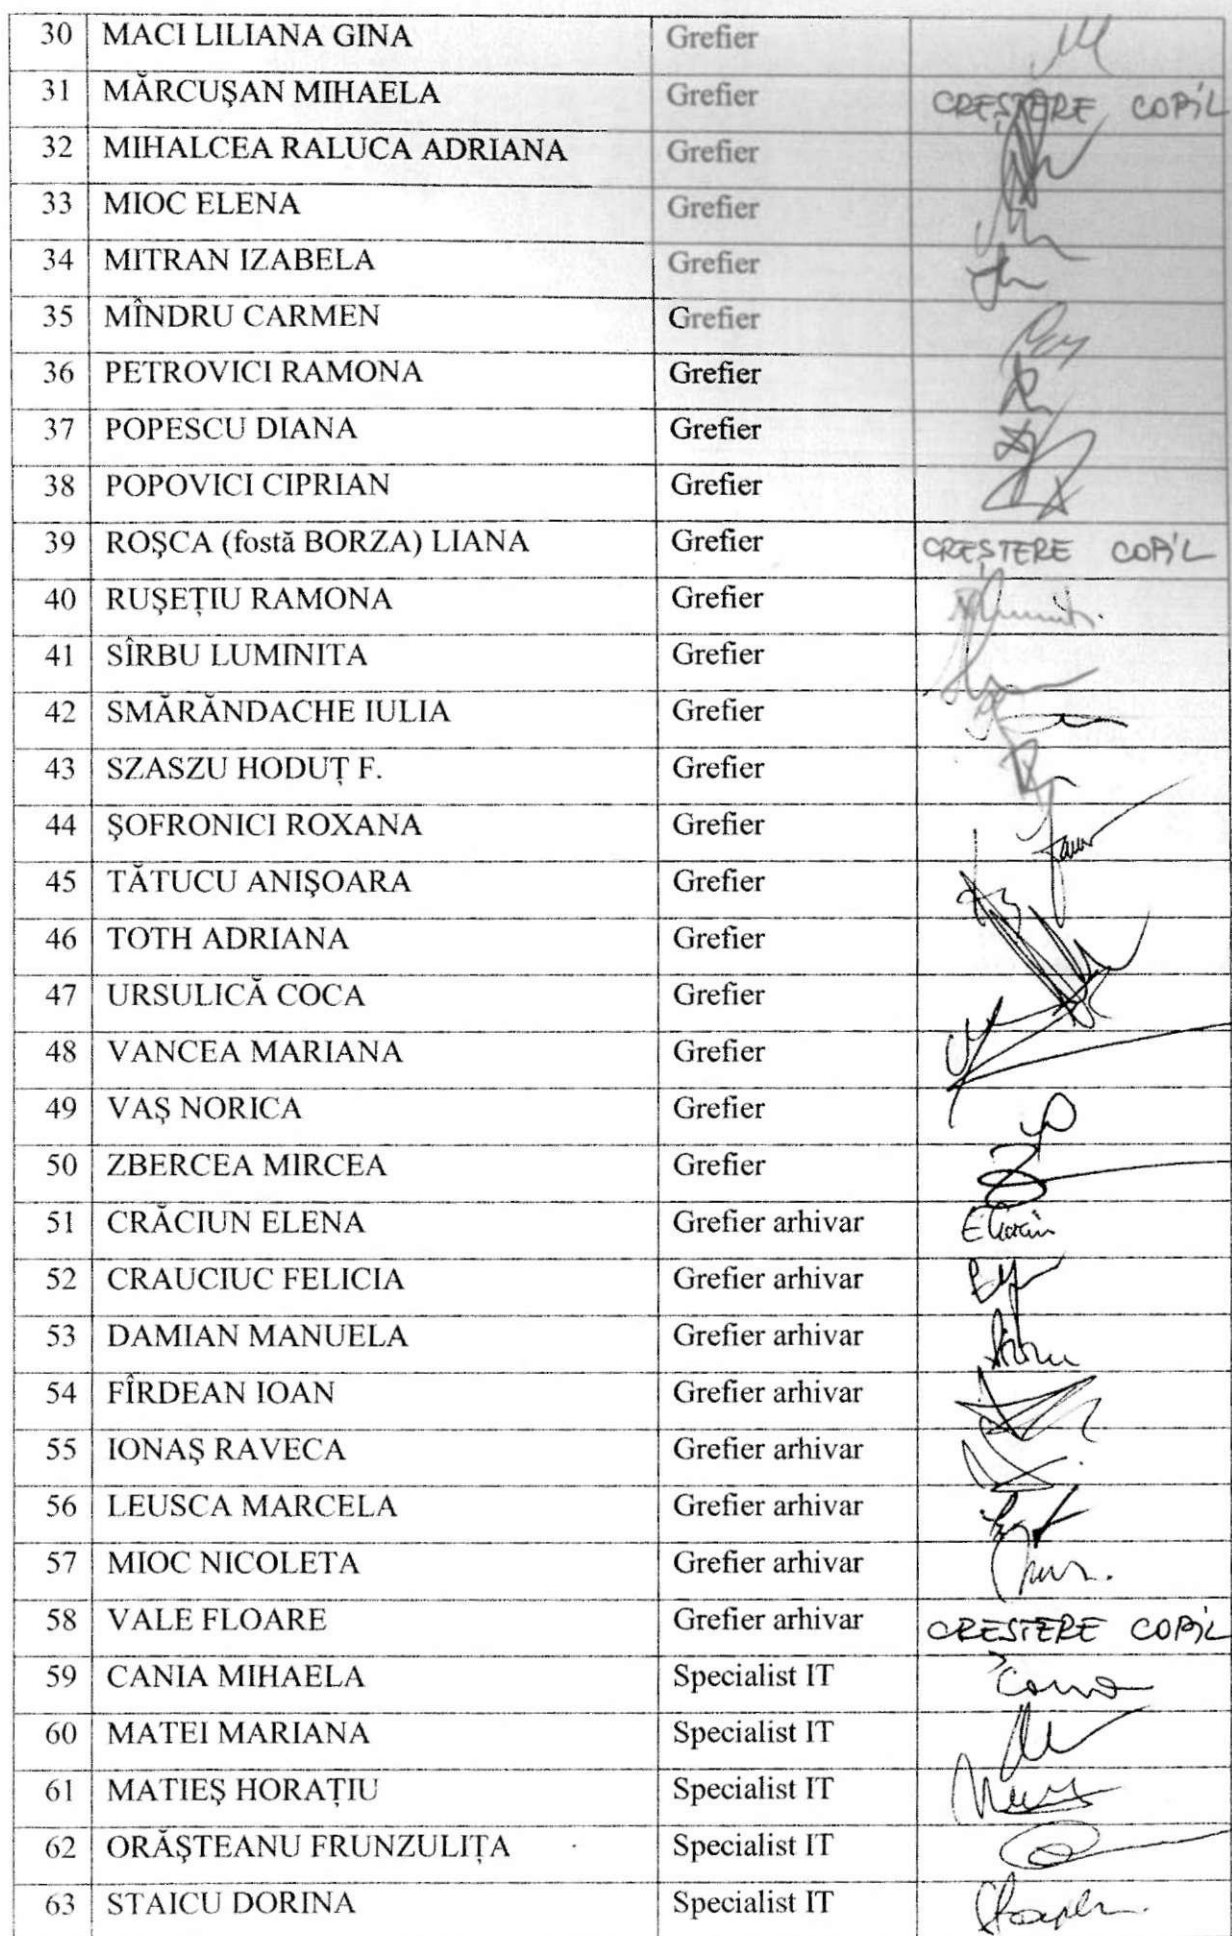 30 MACI LILIANA GINA Grefier
31 MĂRCUŞAN MIHAELA Grefier CREŞTERE COPIL
32 MIHALCEA RALUCA ADRIANA Grefier
33 MIOC ELENA Grefier
34 MITRAN IZABELA Grefier
35 MÎNDRU CARMEN Grefier
36 PETROVICI RAMONA Grefier
37 POPESCU DIANA Grefier
38 POPOVICI CIPRIAN Grefier
39 ROŞCA (fostă BORZA) LIANA Grefier CREŞTERE COPIL
40 RUŞEŢIU RAMONA Grefier
41 SÎRBU LUMINITA Grefier
42 SMĂRĂNDACHE IULIA Grefier
43 SZASZU HODUŢ F. Grefier
44 ŞOFRONICI ROXANA Grefier
45 TĂTUCU ANIŞOARA Grefier
46 TOTH ADRIANA Grefier
47 URSULICĂ COCA Grefier
48 VANCEA MARIANA Grefier
49 VAŞ NORICA Grefier
50 ZBERCEA MIRCEA Grefier
51 CRĂCIUN ELENA Grefier arhivar
52 CRAUCIUC FELICIA Grefier arhivar
53 DAMIAN MANUELA Grefier arhivar
54 FÎRDEAN IOAN Grefier arhivar
55 IONAŞ RAVECA Grefier arhivar
56 LEUSCA MARCELA Grefier arhivar
57 MIOC NICOLETA Grefier arhivar
58 VALE FLOARE Grefier arhivar CRESTERE COPIL
59 CANIA MIHAELA Specialist IT
60 MATEI MARIANA Specialist IT
61 MATIEŞ HORAŢIU Specialist IT
62 ORĂŞTEANU FRUNZULIŢA Specialist IT
63 STAICU DORINA Specialist IT